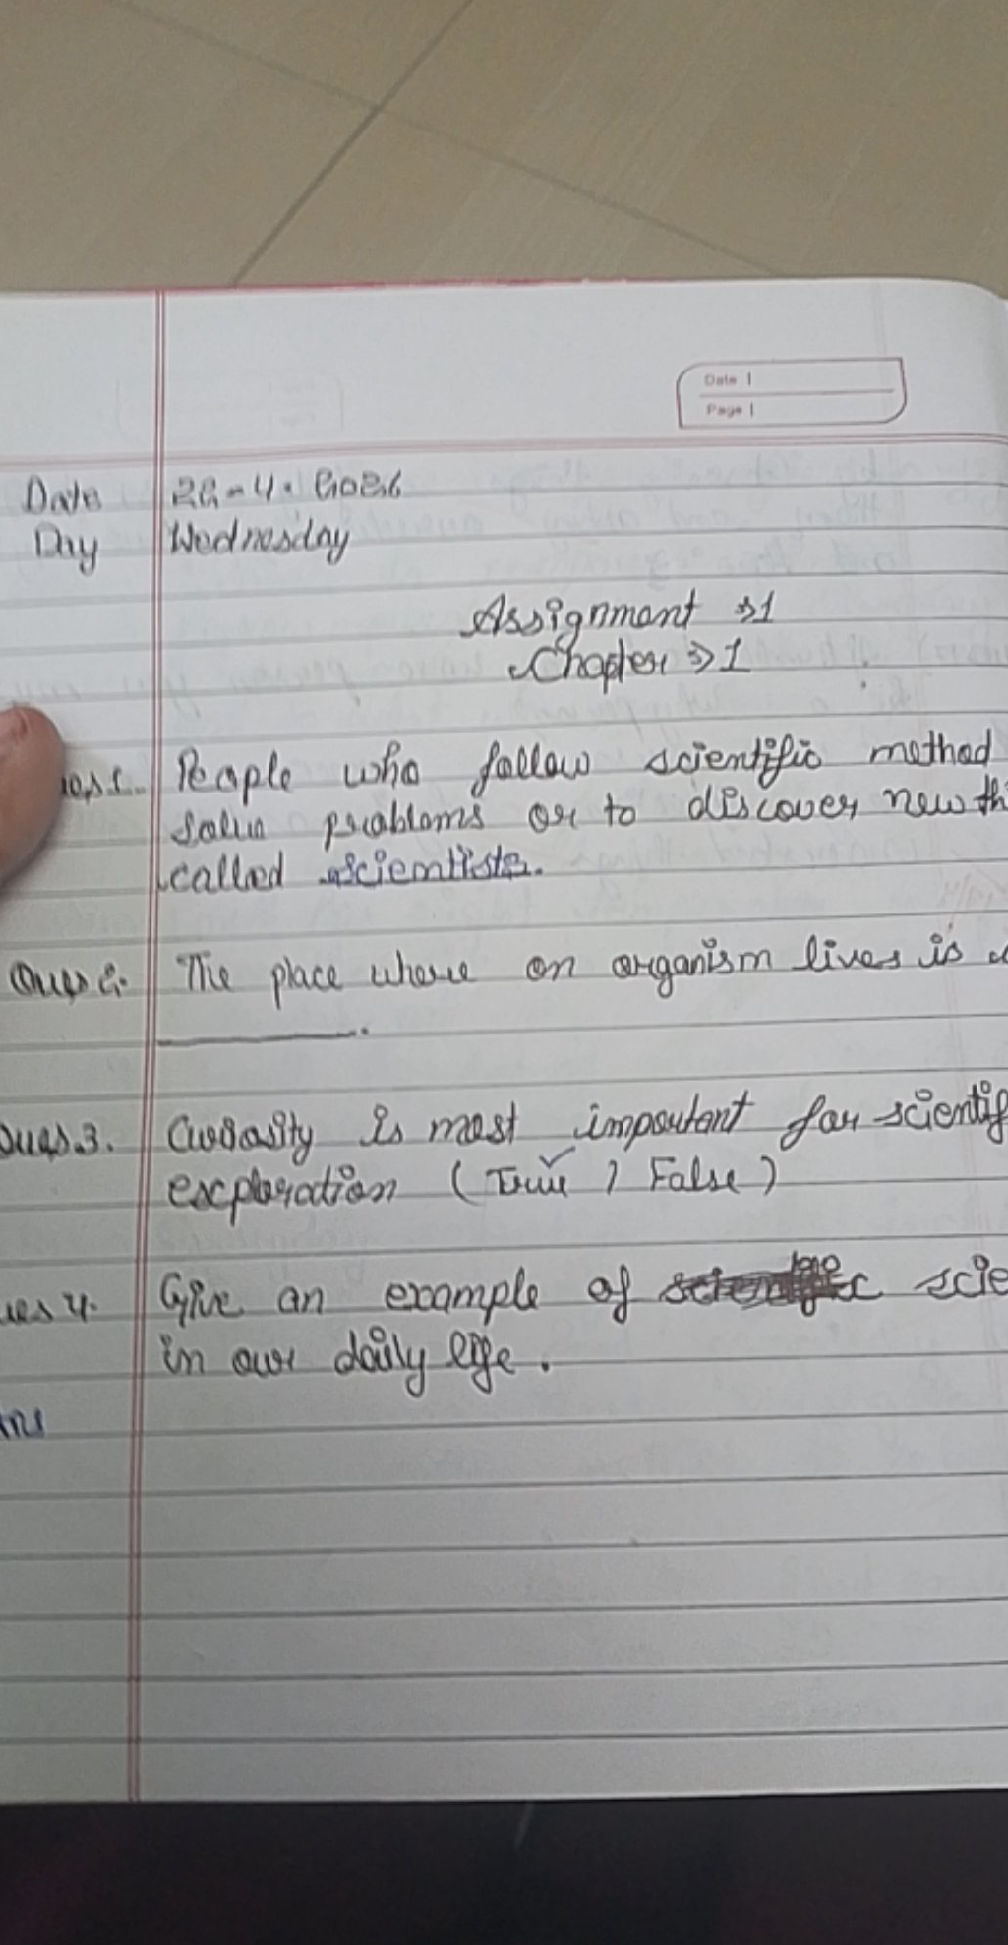 Date
Page
Date 22-4-2026
Day Wednesday
Assignment ⇒1
Chapter ⇒1
People who follow scientific method
solve problems or to discover new
called scientists.
Ques 2. The place where an organism lives is
.
Ques.3. Curiosity is most important for
exploration (True / False)
4. Give an example of
in our daily life.